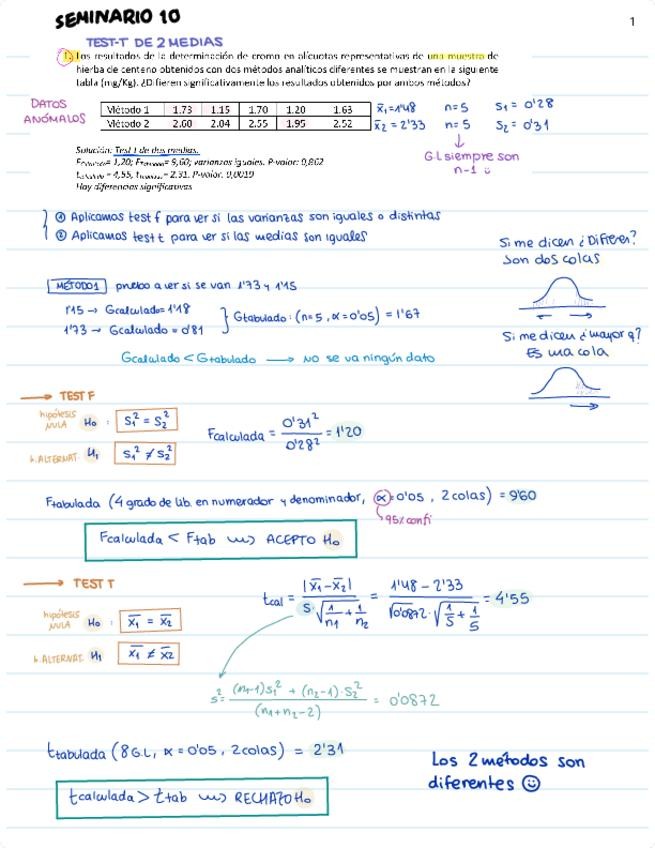 SEMINARIO 10
1
TEST-T DE 2 MEDIAS
1. Los resultados de la determinación de cromo en alícuotas representativas de una muestra de
hierba de centeno obtenidos con dos métodos analíticos diferentes se muestran en la siguiente
tabla (mg/Kg). ¿Difieren significativamente los resultados obtenidos por ambos métodos?
DATOS
ANÓMALOS
Método 1 1.73 1.15 1.70 1.20 1.63
Método 2 2.60 2.04 2.55 1.95 2.52
x̄1=1'48 n=5 S1 = 0'28
x̄2=2'33 n=5 S2 = 0'31
G.L siempre son
n-1
Solución: Test t de dos medias.
Fcalculada= 1,20; Ftabulada= 9,60; varianzas iguales. P-valor: 0,862
tcalculada = 4,55, ttabulada= 2.31. P-valor: 0,0019
Hay diferencias significativas
① Aplicamos test f para ver si las varianzas son iguales o distintas
② Aplicamos test t para ver si las medias son iguales
Si me dicen ¿Difieren?
Son dos colas
MÉTODO 1 pruebo a ver si se van 1'73 y 1'15
1'15 → Gcalculado= 1'18
1'73 → Gcalculado = 0'81
Gtabulado: (n=5, α=0'05) = 1'67
Si me dicen ¿mayor q?
Es una cola
Gcalculado < Gtabulado → No se va ningún dato
→ TEST F
hipótesis NULA H0 : S1² = S2²
h. ALTERNAT. H1 S1² ≠ S2²
Fcalculada = 0'31² / 0'28² = 1'20
Ftabulada (4 grado de lib. en numerador y denominador, α=0'05, 2 colas) = 9'60
95% confi
Fcalculada < Ftab ⇝ ACEPTO H0
→ TEST T
hipótesis NULA H0 : x̄1 = x̄2
h. ALTERNAT. H1 x̄1 ≠ x̄2
tcal = |x̄1-x̄2| / S·√(1/n1 + 1/n2) = 1'48 - 2'33 / √0'0872·√(1/5 + 1/5) = 4'55
s² = (n1-1)s1² + (n2-1)·S2² / (n1+n2-2) = 0'0872
ttabulada (8 G.L, α=0'05, 2 colas) = 2'31
tcalculada > ttab ⇝ RECHAZO H0
Los 2 métodos son
diferentes ☺